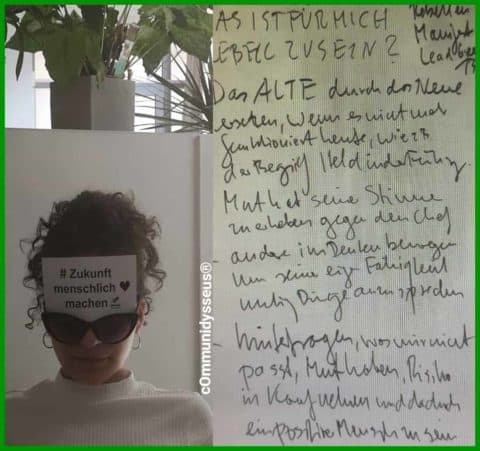 # Zukunft
menschlich ♥
machen
cOmmunidysseus®
AS IST FÜR MICH
EBELL ZU SEIN?
Rebellen
Manifest
Das ALTE durch das Neue
ersetzen, wenn es nicht mehr
funktioniert heute, wie z.B.
der Begriff Held in der Führung.
Mut hat seine Stimme
zu erheben gegen den Chef
- andere im Denken bewegen
um seine eige Fähigkeit
mutig Dinge anzusprechen
- hinterfragen, was mir nicht
passt, Mut haben, Risiko
in Kauf nehmen und dadurch
ein positive Mensch zu sein